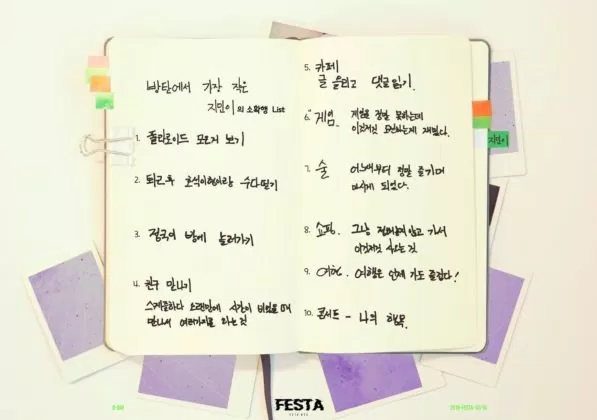 방탄에서 가장 작은
지민이의 소확행 List
1. 폴라로이드 모으기 보기
2. 퇴근후 호석이형이랑 수다떨기
3. 정국이 방에 놀러가기
4. 친구 만나기
스케줄하다 오랜만에 시간이 비었을 때
만나서 여러가지를 하는 것
5. 카페
글 올리고 댓글 읽기.
6. 게임. 게임을 정말 못하는데
이것저것 도전하는게 재밌다.
7. 술 어느때부터 정말 즐기며
마시게 되었다.
8. 쇼핑. 그냥 가서
이것저것 사는 것
9. 여행. 여행은 언제 가도 즐겁다!
10. 콘서트 - 나의 행복.
지민이
FESTA